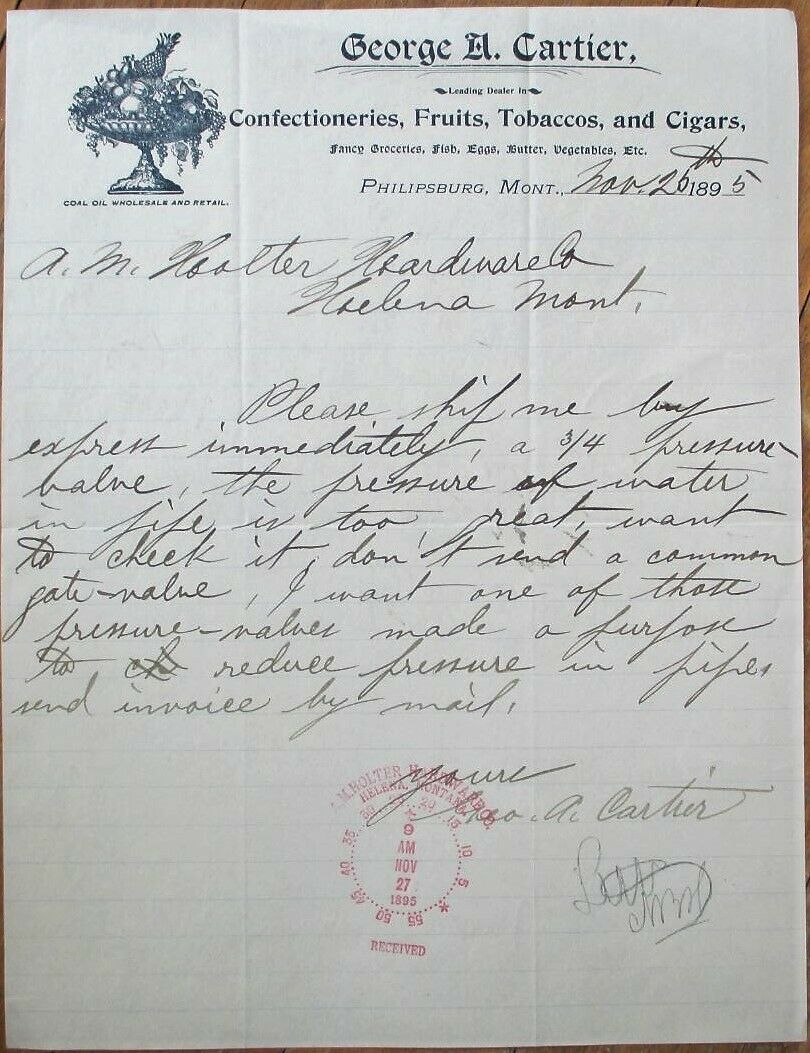 George A. Cartier,
Leading Dealer in
Confectioneries, Fruits, Tobaccos, and Cigars,
Fancy Groceries, Fish, Eggs, Butter, Vegetables, Etc.
COAL OIL WHOLESALE AND RETAIL.
PHILIPSBURG, MONT., Nov. 26th 1895
A. M. Hoolter Hardware Co
Helena Mont.
Please ship me by
express immediately, a 3/4 pressure-
valve, the pressure of water
in pipe is too great, want
to check it, don't send a common
gate-valve, I want one of those
pressure-valves made a purpose
to ch reduce pressure in pipes
send invoice by mail.
Yours
Geo. A. Cartier
A.M. HOLTER HARDWARE CO.
HELENA, MONTANA.
9
AM
NOV
27
1895
5 10 15 20 35 40 45 50 55
RECEIVED